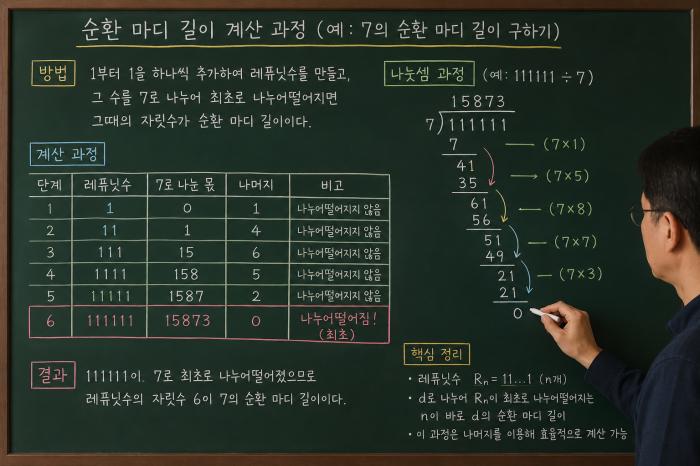 순환 마디 길이 계산 과정 (예: 7의 순환 마디 길이 구하기)
방법
1부터 1을 하나씩 추가하여 레퓨닛수를 만들고,
그 수를 7로 나누어 최초로 나누어떨어지면
그때의 자릿수가 순환 마디 길이이다.
계산 과정
단계 레퓨닛수 7로 나눈 몫 나머지 비고
1 1 0 1 나누어떨어지지 않음
2 11 1 4 나누어떨어지지 않음
3 111 15 6 나누어떨어지지 않음
4 1111 158 5 나누어떨어지지 않음
5 11111 1587 2 나누어떨어지지 않음
6 111111 15873 0 나누어떨어짐!
(최초)
결과
111111이. 7로 최초로 나누어떨어졌으므로
레퓨닛수의 자릿수 6이 7의 순환 마디 길이이다.
나눗셈 과정 (예: 111111 ÷ 7)
15873
7)111111
7 (7×1)
41
35 (7×5)
61
56 (7×8)
51 (7×7)
49
21 (7×3)
21
0
핵심 정리
• 레퓨닛수 Rₙ = 11...1 (n개)
• d로 나누어 Rₙ이 최초로 나누어떨어지는
n이 바로 d의 순환 마디 길이
• 이 과정은 나머지를 이용해 효율적으로 계산 가능